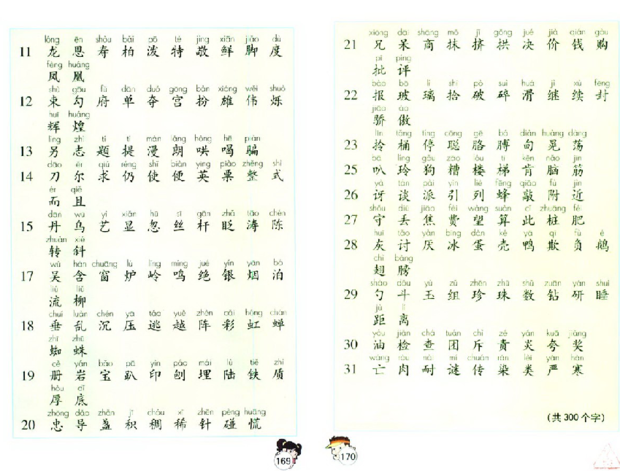 lóng ēn shòu bǎi pō tè jìng xiān jiǎo dù
11 龙 恩 寿 柏 泼 特 敬 鲜 脚 度
fèng huáng
凤 凰
shù gōu fǔ dān duó gōng bàn xióng wěi shuò
12 束 勾 府 单 夺 宫 扮 雄 伟 烁
huī huáng
辉 煌
lìng zhì tí màn lǎng hǒng hē piàn
13 另 志 题 提 漫 朗 哄 喝 骗
dāo ěr qiú réng shǐ biàn yīng piào zhěng shì
14 刀 尔 求 仍 使 便 英 票 整 式
ér qiě
而 且
dān wū yì xiǎn hū sī gān zhǎ tāo chén
15 丹 乌 艺 显 忽 丝 杆 眨 涛 陈
zhuǎn xié
转 斜
wú hán chuāng lú lǐng míng jué yín yān bó
17 吴 含 窗 炉 岭 鸣 绝 银 烟 泊
liú liǔ
流 柳
chuí luàn chén yā táo yuè zhèn cǎi hóng chán
18 垂 乱 沉 压 逃 越 阵 彩 虹 蝉
zhī zhū
蜘 蛛
cè yán bǎo pā yìn páo mái lù tiě zhì
19 册 岩 宝 趴 印 刨 埋 陆 铁 质
hòu dǐ
厚 底
zhōng dǎo zhǎn jī chóu xī zhēn pèng huāng
20 忠 导 盏 积 稠 稀 针 碰 慌
169
xiōng dāi shāng mǒ jǐ gǒng jué jià qián gòu
21 兄 呆 商 抹 挤 拱 决 价 钱 购
pī píng
批 评
bào bō lí shí pò suì huá jì xù fēng
22 报 玻 璃 拾 破 碎 滑 继 续 封
jiāo ào
骄 傲
líng tǒng tíng cōng gē bó diàn huǎng dàng
23 拎 桶 停 聪 胳 膊 甸 晃 荡
bā líng gǒu zāo lóu tī kěn nǎo jīn
25 叭 玲 狗 糟 楼 梯 肯 脑 筋
yà tán pài yǐn liè fēng qiāo fù jìn
26 讶 谈 派 引 列 蜂 敲 附 近
shǒu diū jiāo fèi wàng suàn cǐ zhuāng féi
27 守 丢 焦 费 望 算 此 桩 肥
huī tǎo yàn bīng dàn ké yā qī fù é
28 灰 讨 厌 冰 蛋 壳 鸭 欺 负 鹅
chì bǎng
翅 膀
sháo dǒu yù zǔ zhēn zhū shǔ zuān yán shuì
29 勺 斗 玉 组 珍 珠 数 钻 研 睡
jù lí
距 离
yóu jiǎn chá tuán chì zé yán kuā jiǎng
30 油 检 查 团 斥 责 炎 夸 奖
wáng ròu nài mí chuán rǎn lèi yán hán
31 亡 肉 耐 谜 传 染 类 严 寒
(共 300 个字)
170